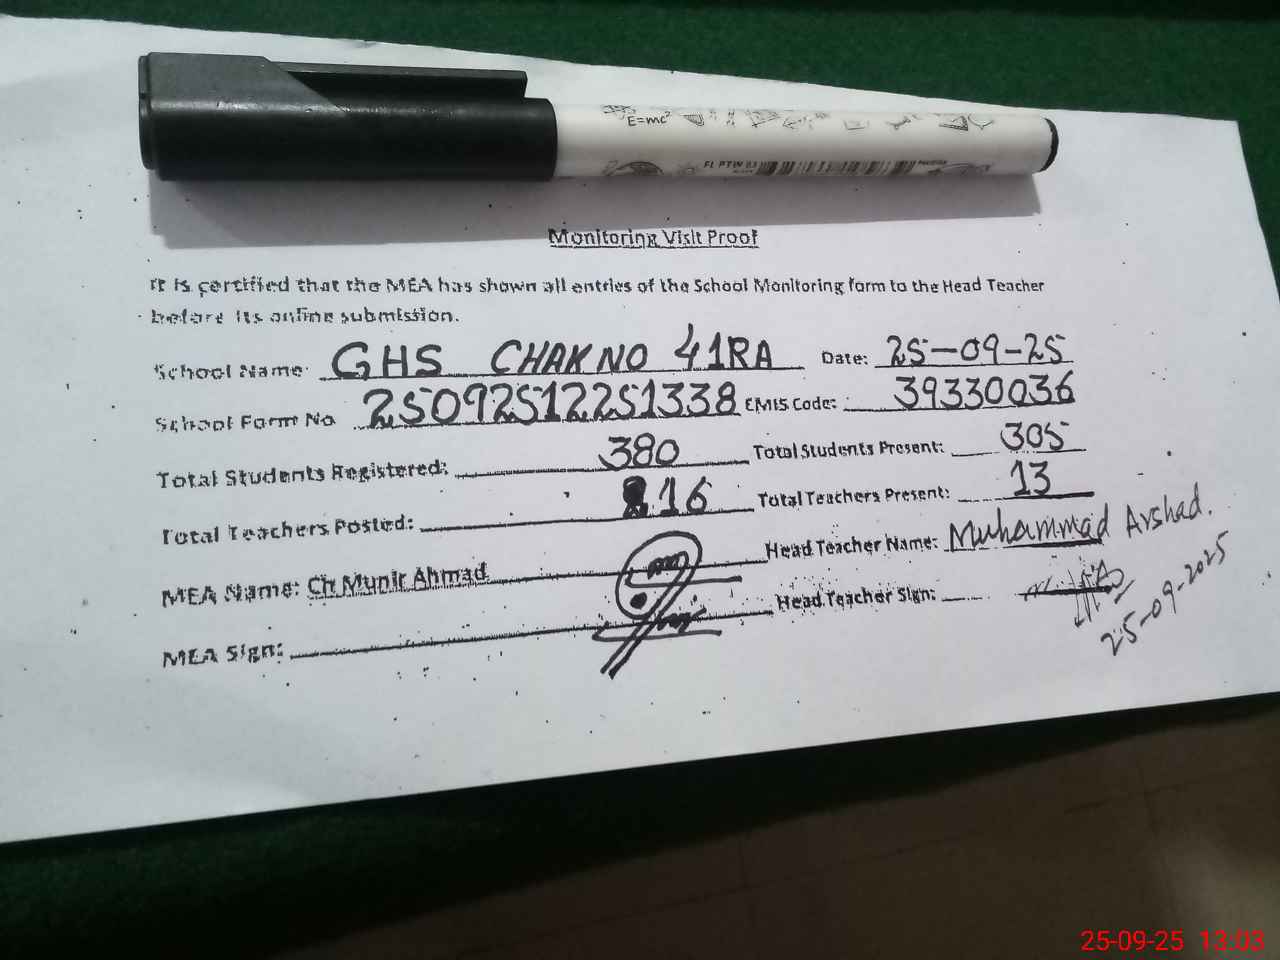 E=mc²
FL PTW 03
Monitoring Visit Proof
It is certified that the MEA has shown all entries of the School Monitoring form to the Head Teacher
before its online submission.
School Name: GHS CHAK NO 41RA Date: 25-09-25
School Form No 25092512251338 EMIS Code: 39330036
Total Students Registered: 380 Total Students Present: 305
Total Teachers Posted: 16 Total Teachers Present: 13
MEA Name: Ch Munir Ahmad Head Teacher Name: Muhammad Arshad.
MEA Sign: Head Teacher Sign:
25-09-2025
25-09-25 13:03